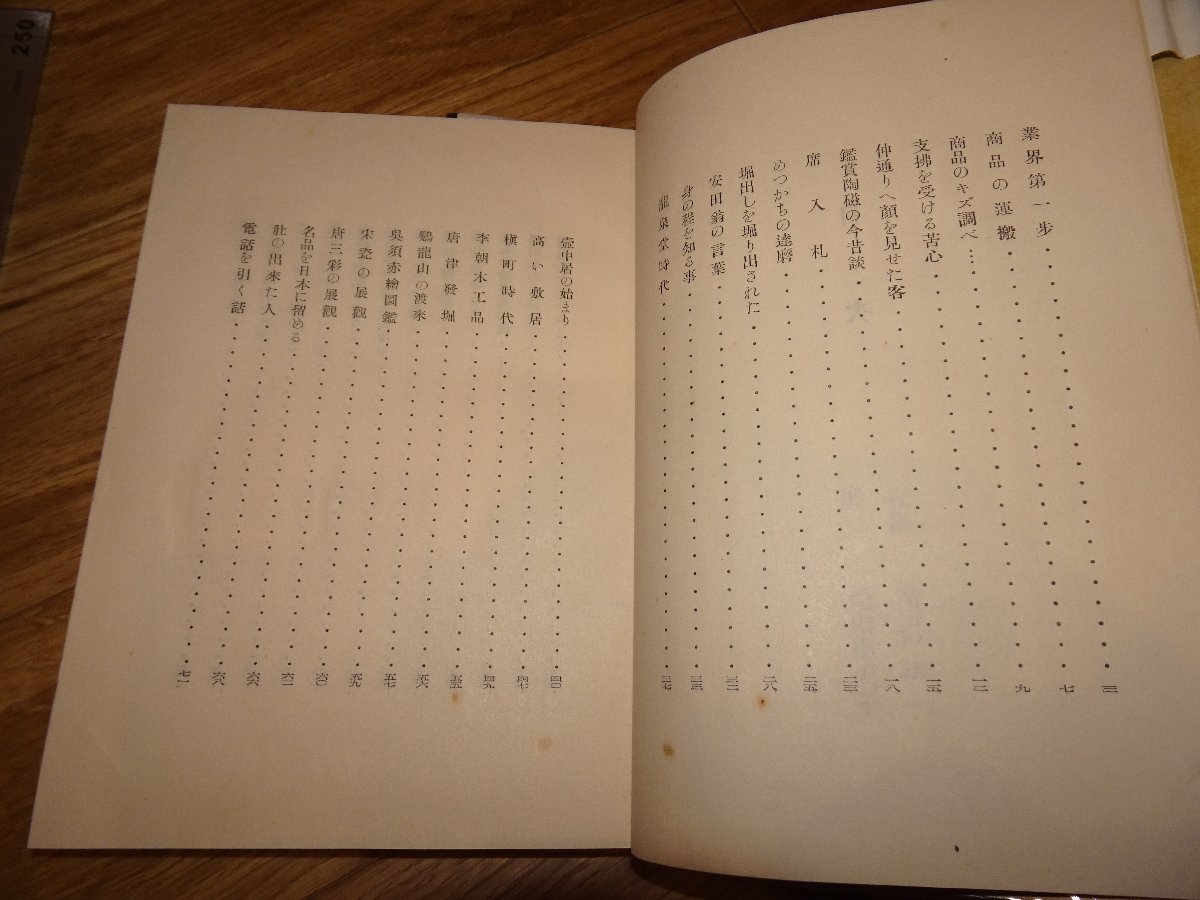 業界第一歩・・・三
商品の運搬・・・七
商品のキズ調べ…・・・九
支拂を受ける苦心・・・一二
仲通りへ顔を見せた客・・・一五
鑑賞陶磁の今昔談・・・一八
席入札・・・二三
めつかちの達磨・・・二五
堀出しを堀り出された・・・二八
安田翁の言葉・・・三二
身の程を知る事・・・三三
龍泉堂時代・・・三七
壺中居の始まり・・・四〇
高い敷居・・・四七
槇町時代・・・四九
李朝木工品・・・五五
唐津發堀・・・五六
鷄龍山の渡來・・・五七
呉須赤繪圖鑑・・・五九
宋瓷の展觀・・・六〇
唐三彩の展觀・・・六一
名品を日本に留める・・・六六
肚の出來た人・・・六八
電話を引く話・・・七一
250